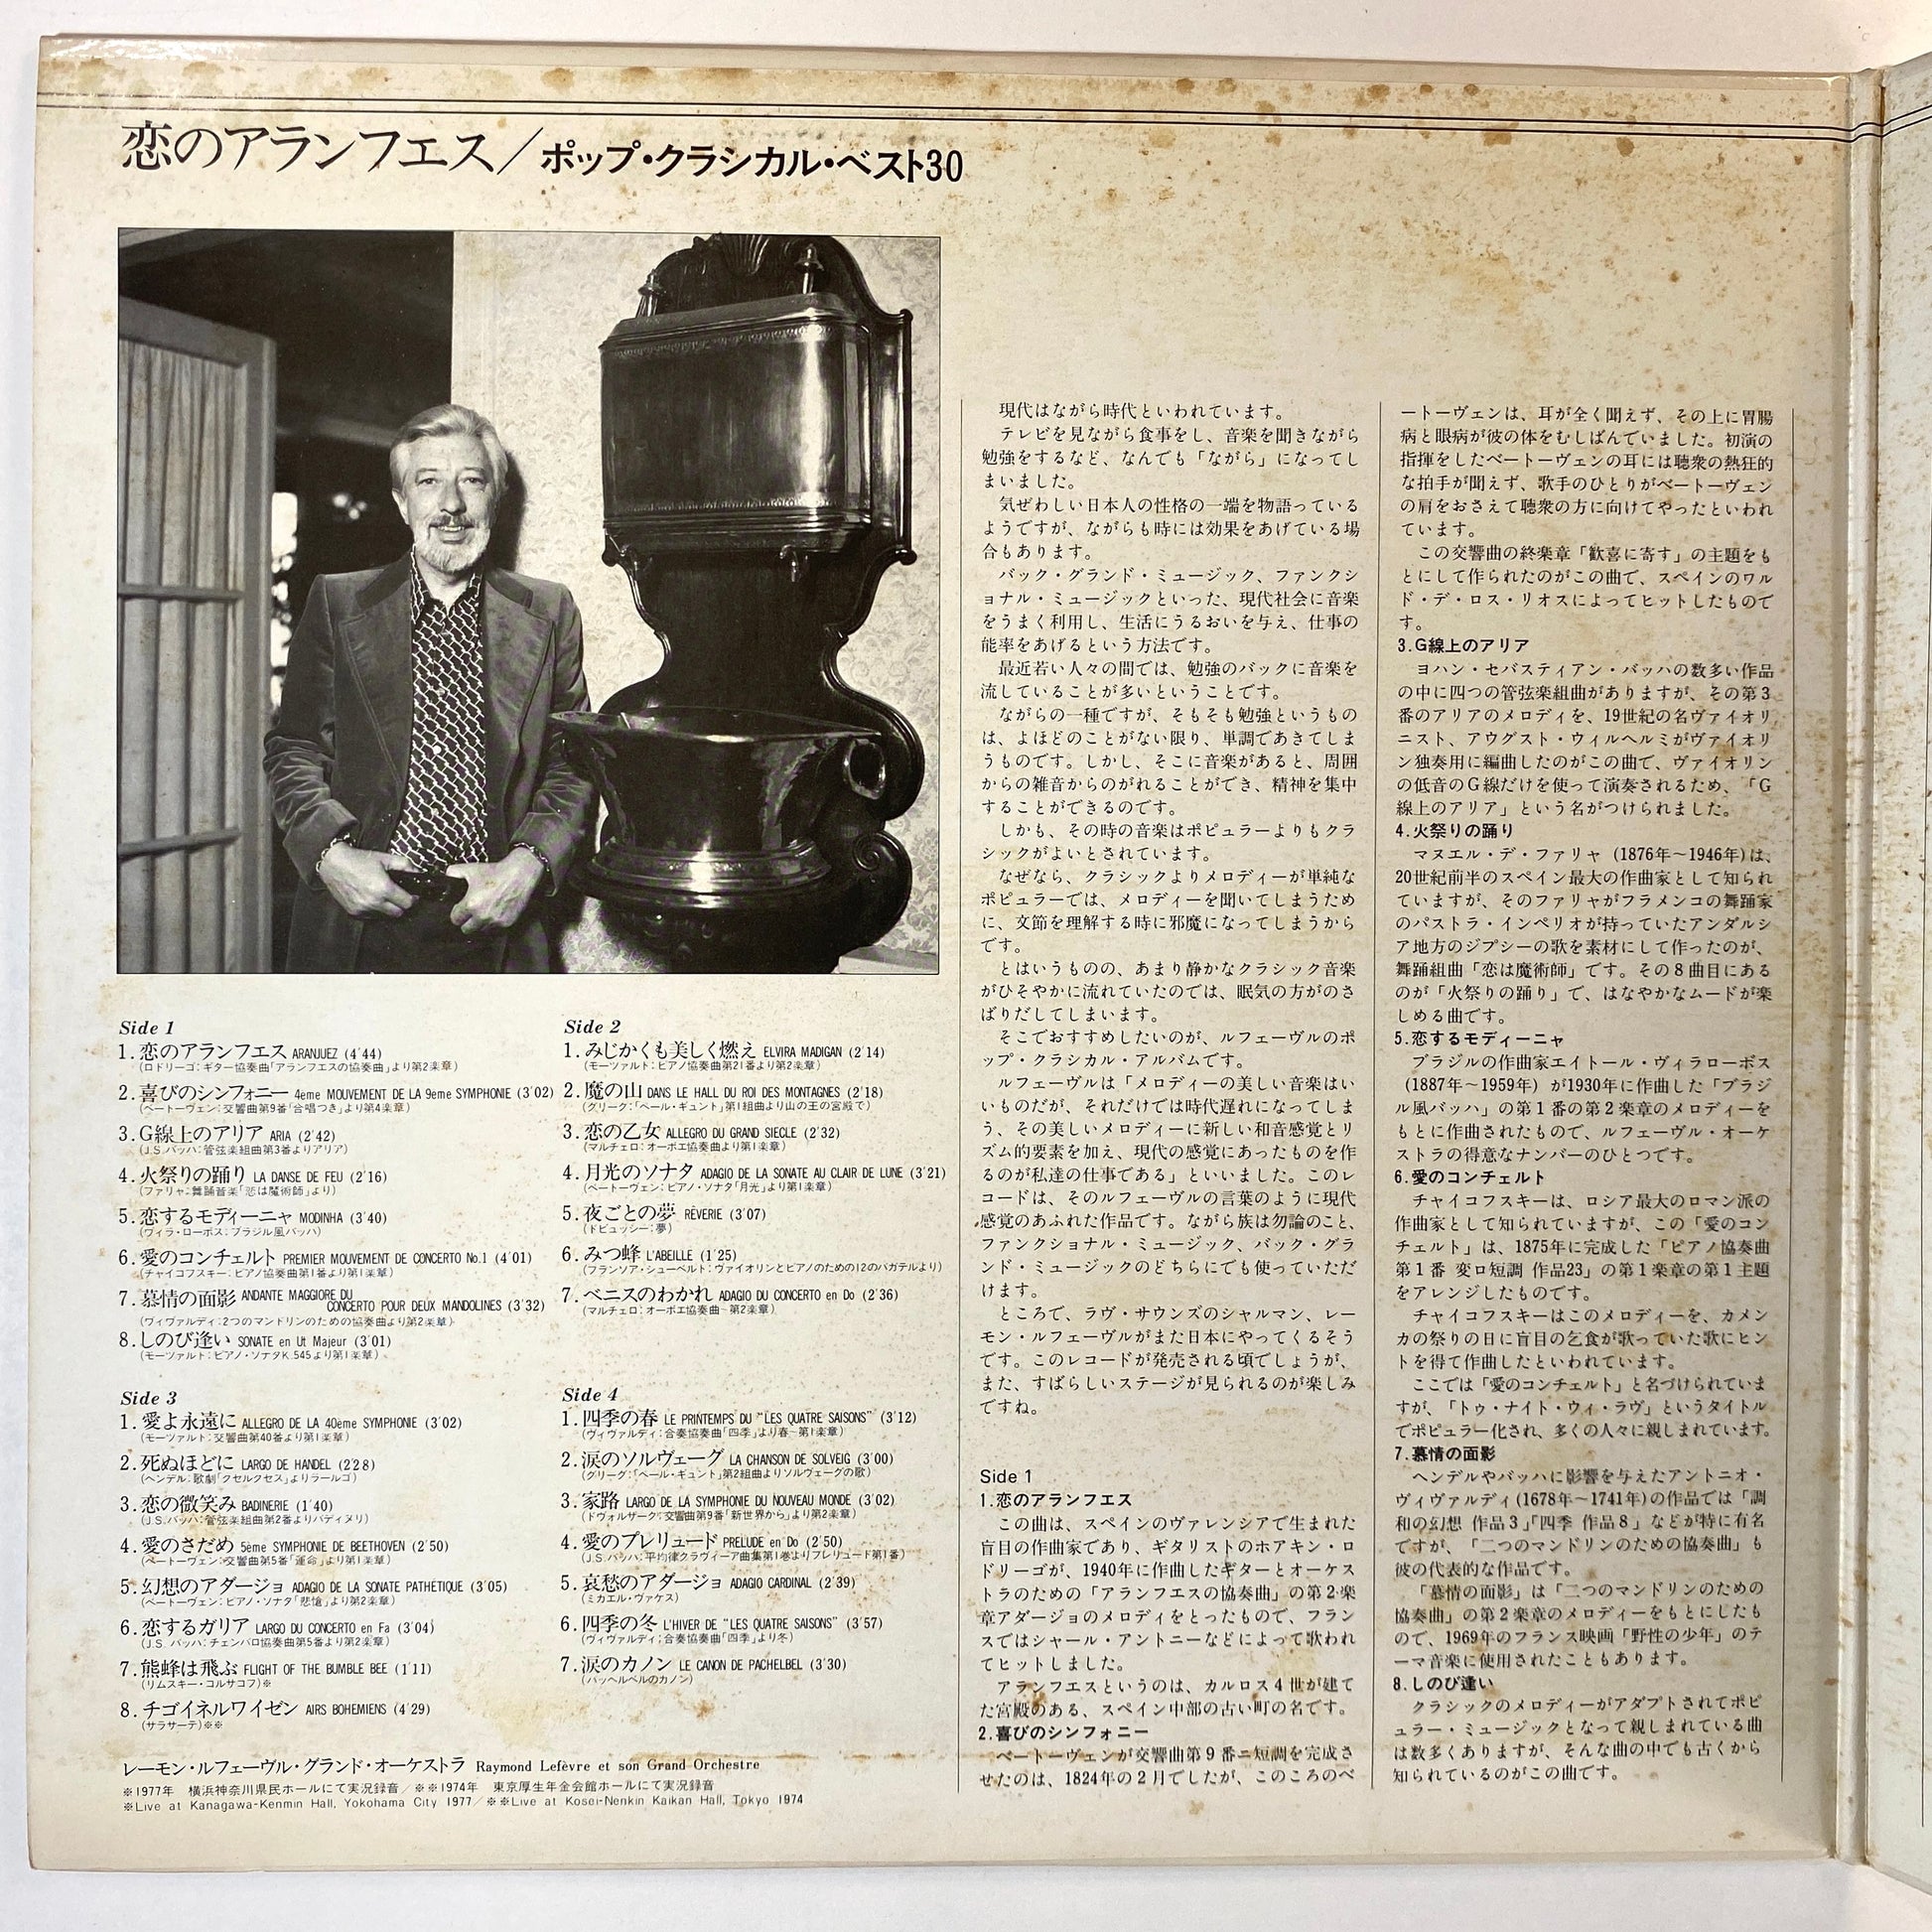 恋のアランフエス／ポップ・クラシカル・ベスト30
Side 1
1. 恋のアランフエス ARANJUEZ (4′44)
(ロドリーゴ：ギター協奏曲「アランフエスの協奏曲」より第2楽章)
2. 喜びのシンフォニー 4eme MOUVEMENT DE LA 9eme SYMPHONIE (3′02)
(ベートーヴェン：交響曲第9番「合唱つき」より第4楽章)
3. G線上のアリア ARIA (2′42)
(J.S.バッハ：管弦楽組曲第3番よりアリア)
4. 火祭りの踊り LA DANSE DE FEU (2′16)
(ファリャ：舞踊音楽「恋は魔術師」より)
5. 恋するモディーニャ MODINHA (3′40)
(ヴィラ・ローボス：ブラジル風バッハ)
6. 愛のコンチェルト PREMIER MOUVEMENT DE CONCERTO No.1 (4′01)
(チャイコフスキー：ピアノ協奏曲第1番より第1楽章)
7. 慕情の面影 ANDANTE MAGGIORE DU
CONCERTO POUR DEUX MANDOLINES (3′32)
(ヴィヴァルディ：2つのマンドリンのための協奏曲より第2楽章)
8. しのび逢い SONATE en Ut Majeur (3′01)
(モーツァルト：ピアノ・ソナタK.545より第1楽章)
Side 2
1. みじかくも美しく燃え ELVIRA MADIGAN (2′14)
(モーツァルト：ピアノ協奏曲第21番より第2楽章)
2. 魔の山 DANS LE HALL DU ROI DES MONTAGNES (2′18)
(グリーク：「ペール・ギュント」第1組曲より山の王の宮殿で)
3. 恋の乙女 ALLEGRO DU GRAND SIECLE (2′32)
(マルチェロ：オーボエ協奏曲より第1楽章)
4. 月光のソナタ ADAGIO DE LA SONATE AU CLAIR DE LUNE (3′21)
(ベートーヴェン：ピアノ・ソナタ「月光」より第1楽章)
5. 夜ごとの夢 RÊVERIE (3′07)
(ドビュッシー：夢)
6. みつ蜂 L'ABEILLE (1′25)
(フランソア・シューベルト：ヴァイオリンとピアノのための12のバガテルより)
7. ベニスのわかれ ADAGIO DU CONCERTO en Do (2′36)
(マルチェロ：オーボエ協奏曲〜第2楽章)
Side 3
1. 愛よ永遠に ALLEGRO DE LA 40ème SYMPHONIE (3′02)
(モーツァルト：交響曲第40番より第1楽章)
2. 死ぬほどに LARGO DE HANDEL (2′28)
(ヘンデル：歌劇「クセルクセス」よりラールゴ)
3. 恋の微笑み BADINERIE (1′40)
(J.S.バッハ：管弦楽組曲第2番よりバディヌリ)
4. 愛のさだめ 5ème SYMPHONIE DE BEETHOVEN (2′50)
(ベートーヴェン：交響曲第5番「運命」より第1楽章)
5. 幻想のアダージョ ADAGIO DE LA SONATE PATHÉTIQUE (3′05)
(ベートーヴェン：ピアノ・ソナタ「悲愴」より第2楽章)
6. 恋するガリア LARGO DU CONCERTO en Fa (3′04)
(J.S. バッハ：チェンバロ協奏曲第5番より第2楽章)
7. 熊蜂は飛ぶ FLIGHT OF THE BUMBLE BEE (1′11)
(リムスキー・コルサコフ)※
8. チゴイネルワイゼン AIRS BOHEMIENS (4′29)
(サラサーテ)※※
Side 4
1. 四季の春 LE PRINTEMPS DU “LES QUATRE SAISONS” (3′12)
(ヴィヴァルディ：合奏協奏曲「四季」より春〜第1楽章)
2. 涙のソルヴェーグ LA CHANSON DE SOLVEIG (3′00)
(グリーク：「ペール・ギュント」第2組曲よりソルヴェーグの歌)
3. 家路 LARGO DE LA SYMPHONIE DU NOUVEAU MONDE (3′02)
(ドヴォルザーク：交響曲第9番「新世界から」より第2楽章)
4. 愛のプレリュード PRELUDE en Do (2′50)
(J.S.バッハ：平均律クラヴィーア曲集第1巻よりプレリュード第1番)
5. 哀愁のアダージョ ADAGIO CARDINAL (2′39)
(ミカエル・ヴァケス)
6. 四季の冬 L'HIVER DE “LES QUATRE SAISONS” (3′57)
(ヴィヴァルディ：合奏協奏曲「四季」より冬)
7. 涙のカノン LE CANON DE PACHELBEL (3′30)
(パッヘルベルのカノン)
レーモン・ルフェーヴル・グランド・オーケストラ Raymond Lefèvre et son Grand Orchestre
※1977年　横浜神奈川県民ホールにて実況録音／※※1974年　東京厚生年金会館ホールにて実況録音
※Live at Kanagawa-Kenmin Hall, Yokohama City 1977／※※Live at Kosei-Nenkin Kaikan Hall, Tokyo 1974
現代はながら時代といわれています。
テレビを見ながら食事をし、音楽を聞きながら
勉強をするなど、なんでも「ながら」になってし
まいました。
気ぜわしい日本人の性格の一端を物語っている
ようですが、ながらも時には効果をあげている場
合もあります。
バック・グランド・ミュージック、ファンクシ
ョナル・ミュージックといった、現代社会に音楽
をうまく利用し、生活にうるおいを与え、仕事の
能率をあげるという方法です。
最近若い人々の間では、勉強のバックに音楽を
流していることが多いということです。
ながらの一種ですが、そもそも勉強というもの
は、よほどのことがない限り、単調であきてしま
うものです。しかし、そこに音楽があると、周囲
からの雑音からのがれることができ、精神を集中
することができるのです。
しかも、その時の音楽はポピュラーよりもクラ
シックがよいとされています。
なぜなら、クラシックよりメロディーが単純な
ポピュラーでは、メロディーを聞いてしまうため
に、文節を理解する時に邪魔になってしまうから
です。
とはいうものの、あまり静かなクラシック音楽
がひそやかに流れていたのでは、眠気の方がのさ
ばりだしてしまいます。
そこでおすすめしたいのが、ルフェーヴルのポ
ップ・クラシカル・アルバムです。
ルフェーヴルは「メロディーの美しい音楽はい
いものだが、それだけでは時代遅れになってしま
う、その美しいメロディーに新しい和音感覚とリ
ズム的要素を加え、現代の感覚にあったものを作
るのが私達の仕事である」といいました。このレ
コードは、そのルフェーヴルの言葉のように現代
感覚のあふれた作品です。ながら族は勿論のこと、
ファンクショナル・ミュージック、バック・グラ
ンド・ミュージックのどちらにでも使っていただ
けます。
ところで、ラヴ・サウンズのシャルマン、レー
モン・ルフェーヴルがまた日本にやってくるそう
です。このレコードが発売される頃でしょうが、
また、すばらしいステージが見られるのが楽しみ
ですね。
Side 1
1.恋のアランフエス
この曲は、スペインのヴァレンシアで生まれた
盲目の作曲家であり、ギタリストのホアキン・ロ
ドリーゴが、1940年に作曲したギターとオーケス
トラのための「アランフエスの協奏曲」の第2楽
章アダージョのメロディをとったもので、フラン
スではシャール・アントニーなどによって歌われ
てヒットしました。
アランフエスというのは、カルロス4世が建て
た宮殿のある、スペイン中部の古い町の名です。
2.喜びのシンフォニー
ベートーヴェンが交響曲第9番ニ短調を完成さ
せたのは、1824年の2月でしたが、このころのベ
ートーヴェンは、耳が全く聞えず、その上に胃腸
病と眼病が彼の体をむしばんでいました。初演の
指揮をしたベートーヴェンの耳には聴衆の熱狂的
な拍手が聞えず、歌手のひとりがベートーヴェン
の肩をおさえて聴衆の方に向けてやったといわれ
ています。
この交響曲の終楽章「歓喜に寄す」の主題をも
とにして作られたのがこの曲で、スペインのワル
ド・デ・ロス・リオスによってヒットしたもので
す。
3.G線上のアリア
ヨハン・セバスティアン・バッハの数多い作品
の中に四つの管弦楽組曲がありますが、その第3
番のアリアのメロディを、19世紀の名ヴァイオリ
ニスト、アウグスト・ウィルヘルミがヴァイオリ
ン独奏用に編曲したのがこの曲で、ヴァイオリン
の低音のG線だけを使って演奏されるため、「G
線上のアリア」という名がつけられました。
4.火祭りの踊り
マヌエル・デ・ファリャ (1876年〜1946年)は、
20世紀前半のスペイン最大の作曲家として知られ
ていますが、そのファリャがフラメンコの舞踊家
のパストラ・インペリオが持っていたアンダルシ
ア地方のジプシーの歌を素材にして作ったのが、
舞踊組曲「恋は魔術師」です。その8曲目にある
のが「火祭りの踊り」で、はなやかなムードが楽
しめる曲です。
5.恋するモディーニャ
ブラジルの作曲家エイトール・ヴィラローボス
(1887年〜1959年) が1930年に作曲した「ブラジ
ル風バッハ」の第1番の第2楽章のメロディーを
もとに作曲されたもので、ルフェーヴル・オーケ
ストラの得意なナンバーのひとつです。
6.愛のコンチェルト
チャイコフスキーは、ロシア最大のロマン派の
作曲家として知られていますが、この「愛のコン
チェルト」は、1875年に完成した「ピアノ協奏曲
第1番 変ロ短調 作品23」の第1楽章の第1主題
をアレンジしたものです。
チャイコフスキーはこのメロディーを、カメン
カの祭りの日に盲目の乞食が歌っていた歌にヒン
トを得て作曲したといわれています。
ここでは「愛のコンチェルト」と名づけられていま
すが、「トゥ・ナイト・ウィ・ラヴ」というタイトル
でポピュラー化され、多くの人々に親しまれています。
7.慕情の面影
ヘンデルやバッハに影響を与えたアントニオ・
ヴィヴァルディ(1678年〜1741年)の作品では「調
和の幻想 作品3」「四季 作品8」などが特に有名
ですが、「二つのマンドリンのための協奏曲」も
彼の代表的な作品です。
「慕情の面影」は「二つのマンドリンのための
協奏曲」の第2楽章のメロディーをもとにしたも
ので、1969年のフランス映画「野性の少年」のテ
ーマ音楽に使用されたこともあります。
8.しのび逢い
クラシックのメロディーがアダプトされてポピ
ュラー・ミュージックとなって親しまれている曲
は数多くありますが、そんな曲の中でも古くから
知られているのがこの曲です。